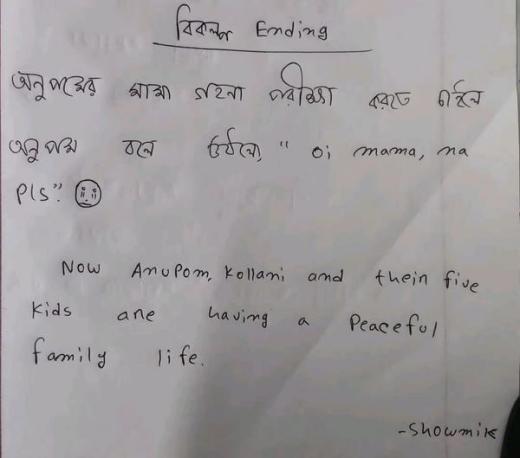 বিকল্প Ending
অনুপমের মামা গহনা পরীক্ষা করতে চাইলে
অনুপম বলে উঠলো, " oi mama, na
pls".
Now Anupom, Kollani and thein five
kids are having a peaceful
family life.
-Showmik